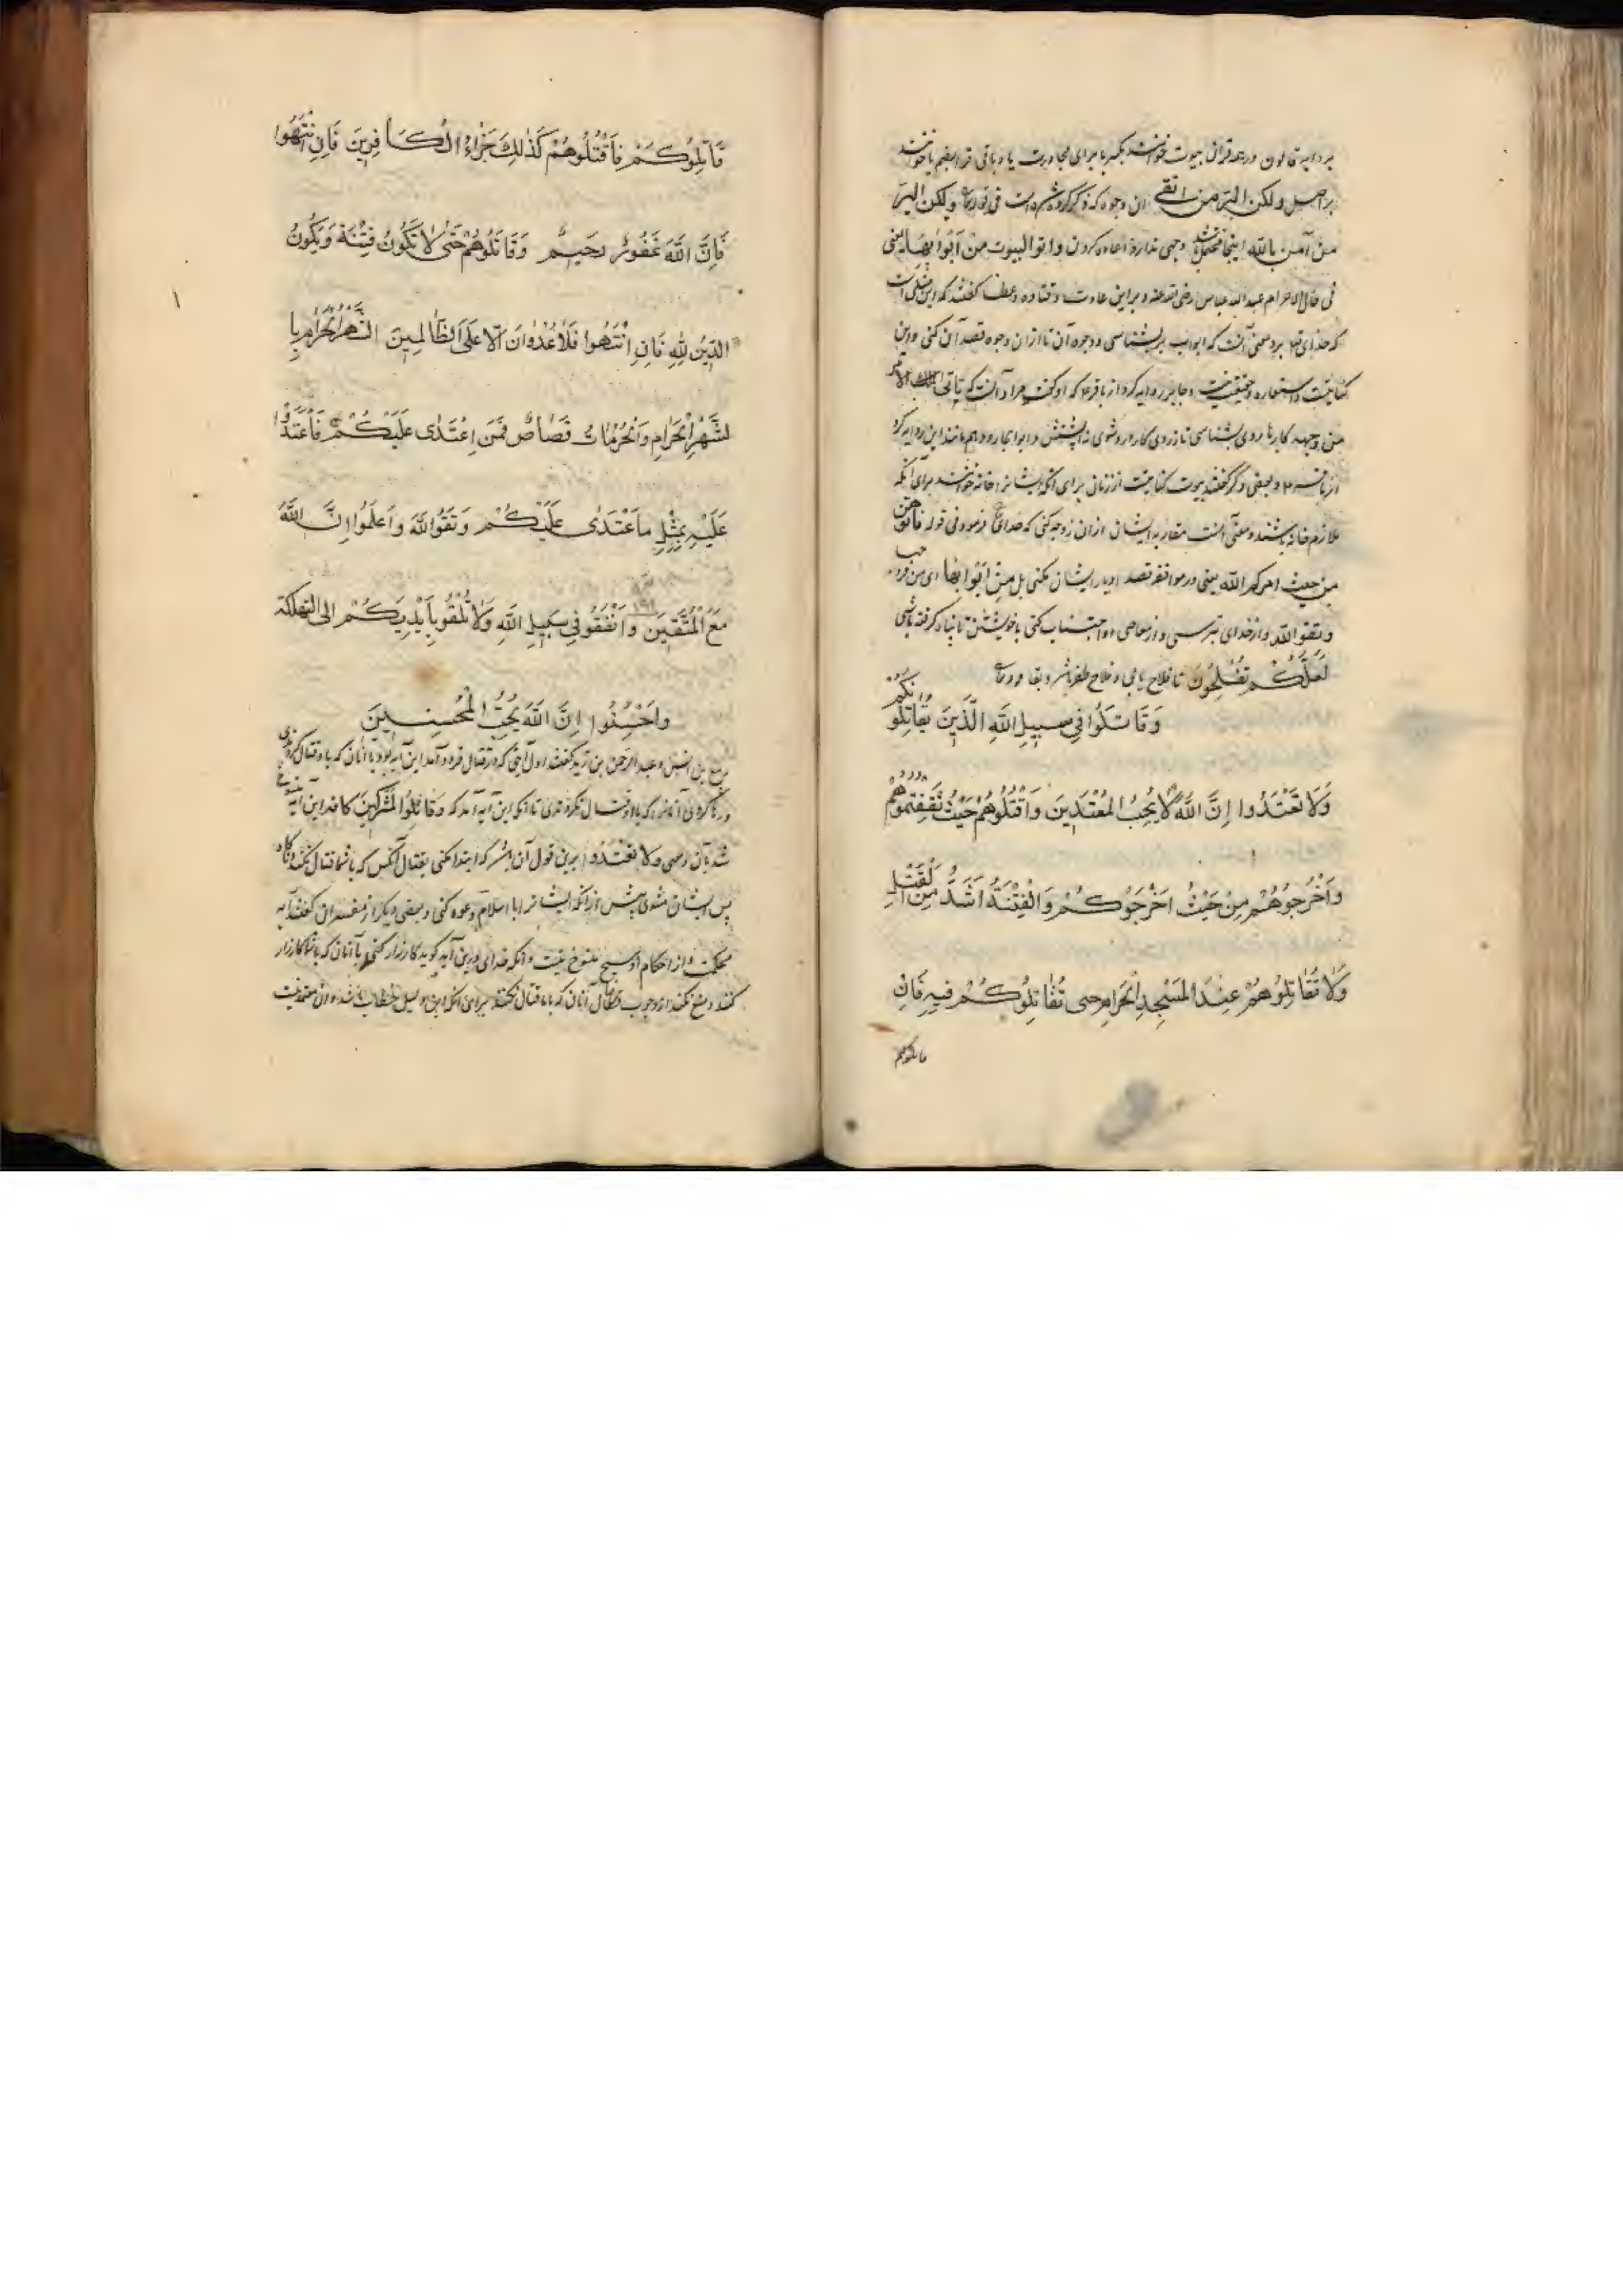 بروایه قالون و در عدقران بیوت خوانند بکسر با برای مجاورت یا و باقی قرا بضم با خوانند
بر اصل ولکن البر من اتقی ان وجوه که ذکر کرده شده است فی قوله تعا ولکن البر
من آمن بالله اینجا محتمل باشد وجهی ندارد اعاده کردن واتوا البیوت من ابوابها یعنی
فی حال الاحرام عبد الله عباس رضی الله عنه و براین عادت و قتاده و عطا گفتند که این مثلی است
که خدای تعا بزد معنی آنست که ابواب بر بشناسی و وجوه آن تا ازان وجوه قصد آن کنی و این
کنایتست و استعاره و حقیقت نیست و جابر روایه کرد از باقر ع که او گفت مراد آنست که یاتی الامر
من وجهه کارها بروی بشناسی تا از روی کار در وشوی نه از پشتش و ابو الجارود هم مانند این روایه کرد
از باقر ع و بعضی دگر گفتند بیوت کنایتست از زنان برای آنکه ایشانرا خانه خوانند برای آنکه
ملازم خانه باشند و معنی آنست مقاربه ایشان ازان وجه کنی که خدای تعا فرمود فی قوله فاتوهن
من حیث امرکم الله یعنی در موافقه قصد ادبار ایشان نکنی بل من ابوابها ای من فروجها
وتقوا الله و از خدای بترسی و از معاصی او اجتناب کنی با خویشتن تا پناه گرفته باشی
لعلکم تفلحون تا فلاح یابی و فلاح ظفر باشد و بقا قوله تعا
وَقَاتَلُوا فِي سبيلِ اللّهِ الَّذِينَ يُقَاتِلُونَكُمْ
وَلَا تَعْتَدُوا إِنَّ اللَّهَ لَا يُحِبُّ المُعْتَدِينَ وَاقْتُلُوهُمْ حَيْثُ ثَقِفْتُمُوهُمْ
وَأَخْرِجُوهُمْ مِنْ حَيْثُ أَخْرَجُوكُمْ وَالْفِتْنَةُ أَشَدُّ مِنَ الْقَتْلِ
وَلَا تُقَاتِلُوهُمْ عِنْدَ المَسْجِدِ الْحَرَامِ حتى تُقَاتِلُوكُمْ فِيهِ فَإِن
قاتلوکم
قَاتَلُوكُمْ فَاقْتُلُوهُمْ كَذَٰلِكَ جَزَاءُ الْكَافِرِينَ فَإِنِ انْتَهَوا
فَإِنَّ اللَّهَ غَفُورٌ رحِيمٌ وَقَاتَلُوهُمْ حَتَّى لَا تَكُونُ فِتْنَةً وَيَكُونُ
الدِّينُ لِلَّهِ فَإِنِ انْتَهَوا فَلَا عُدْوَانَ إلَّا عَلَى الظَّالِمِينَ الشَّهْرُ الْحَرَامُ بِا
لشَّهْرِ الْحَرَامِ وَالْحُرُمَاتُ قِصَاصٌ فَمَنِ اعْتَدَى عَلَيْكُمْ فَاعْتَدُوا
عَلَيْهِ بِمِثْلِ مَا اعْتَدَى عَلَيْكُمْ وَتَقُوا اللَّهَ وَاعْلَمُوا إِنَّ اللَّهَ
مَعَ الْمُتَّقِينَ وَانْفَقُو فِي سَبِيلِ اللَّهِ وَلَا تُلْقُو بِأَيْدِيَكُمْ إلى التهلكة
وَاحْسِنُوا إنَّ اللَّهَ يُحِبُّ المُحْسِنِينَ
ربیع بن انس و عبد الرحمن بن زید گفتند اول آیتی که در قتال فرود آمد این آیه بود با آنان که با او قتال کردندی
و رها کردی آنانرا که با او قتال نکردندی تا آنکه این آیه آمد که وقاتلوا المشرکین کافه این آیه منسوخ
شد بآن ولا تعتدوا برین قول آن باشد که ابتدا نکنی بقتال آنکس که با شما قتال نکند
پس ایشان مشوی پیش ازانکه ایشانرا با اسلام دعوه کنی و بعضی دیگر از مفسران گفتند آیه
محکمت و از احکام او هیچ منسوخ نیست و آنکه خدای درین آیه گوید کارزار کنی با آنان که با شما کارزار
کنند و منع نکند از وجوب قتال آنان که با ما قتال نکنند برای آنکه این دلیل خطاب باشد و ان معتمد نیست